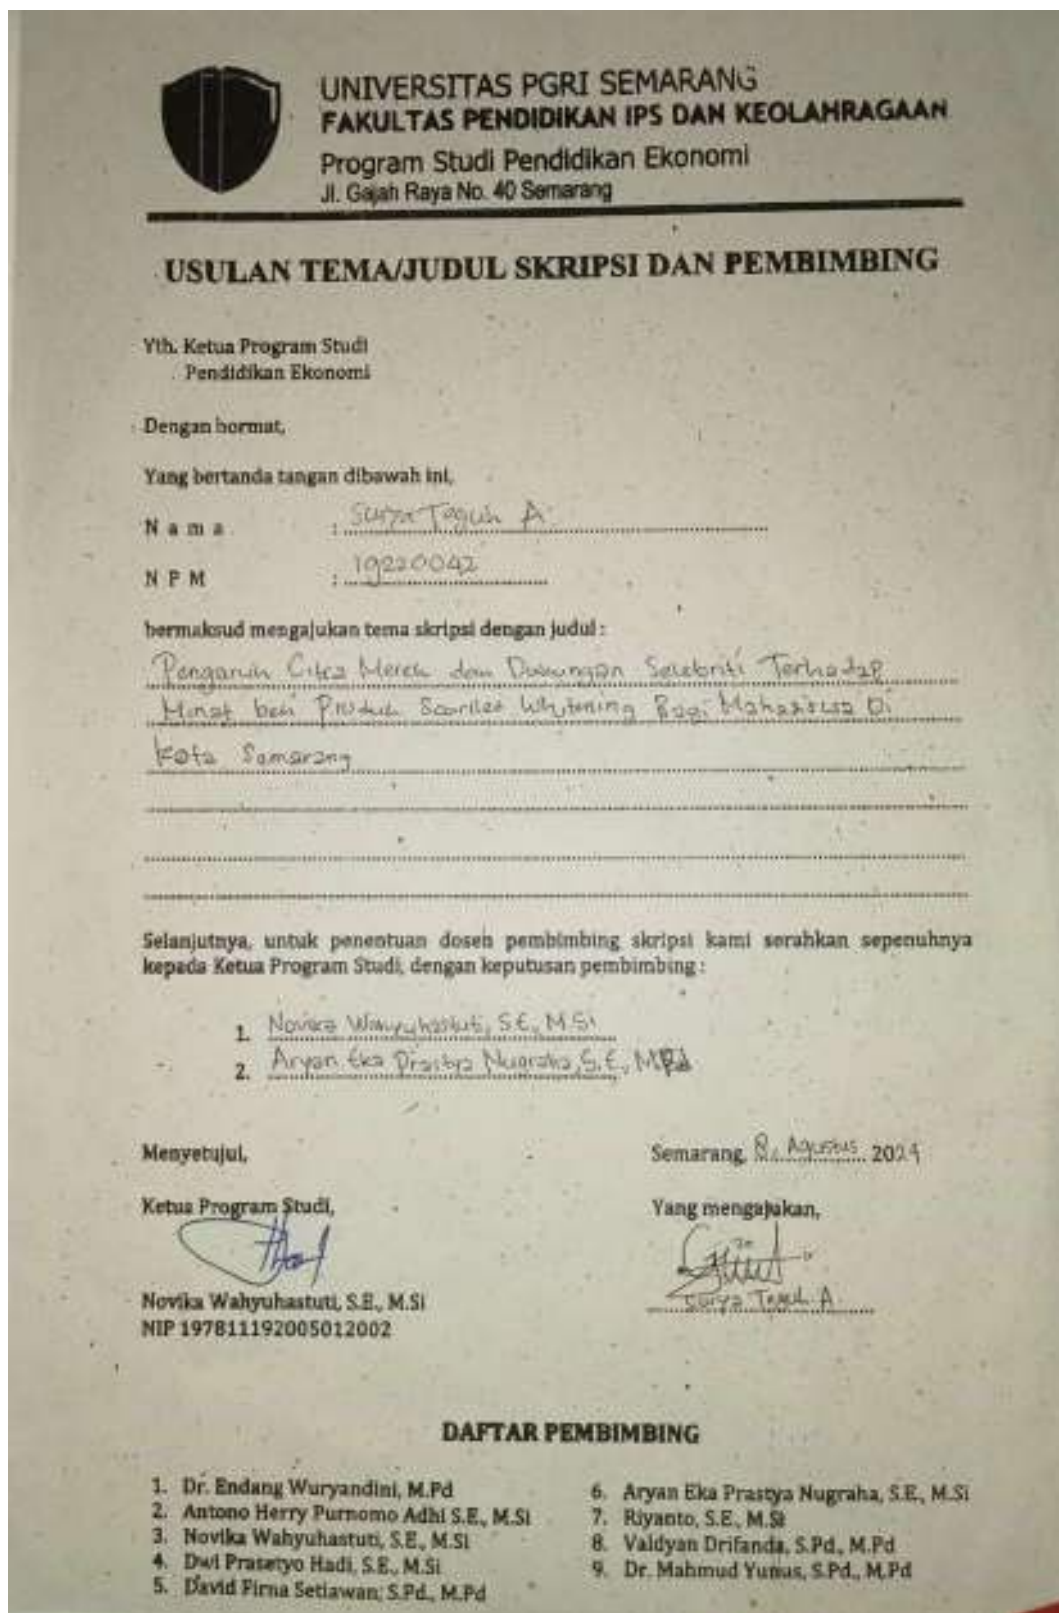 UNIVERSITAS PGRI SEMARANG
FAKULTAS PENDIDIKAN IPS DAN KEOLAHRAGAAN
Program Studi Pendidikan Ekonomi
Jl. Gajah Raya No. 40 Semarang
USULAN TEMA/JUDUL SKRIPSI DAN PEMBIMBING
Yth. Ketua Program Studi
Pendidikan Ekonomi
Dengan hormat,
Yang bertanda tangan dibawah ini,
N a m a : Surya Teguh A
N P M : 19220042
bermaksud mengajukan tema skripsi dengan judul :
Pengaruh Citra Merek dan Dukungan Selebriti Terhadap
Minat beli Produk Scarlet Whitening Bagi Mahasiswa Di
Kota Semarang
Selanjutnya, untuk penentuan dosen pembimbing skripsi kami serahkan sepenuhnya
kepada Ketua Program Studi, dengan keputusan pembimbing :
1. Novika Wahyuhastuti, S.E., M.Si
2. Aryan Eka Prastya Nugraha, S.E., M.Pd
Menyetujui,
Semarang, 8, Agustus 2024
Ketua Program Studi,
Yang mengajukan,
Novika Wahyuhastuti, S.E., M.Si
Surya Teguh A.
NIP 197811192005012002
DAFTAR PEMBIMBING
1. Dr. Endang Wuryandini, M.Pd
2. Antono Herry Purnomo Adhi S.E., M.Si
3. Novika Wahyuhastuti, S.E., M.Si
4. Dwi Prasetyo Hadi, S.E., M.Si
5. David Firna Setiawan, S.Pd., M.Pd
6. Aryan Eka Prastya Nugraha, S.E., M.Si
7. Riyanto, S.E., M.Si
8. Valdyan Drifanda, S.Pd., M.Pd
9. Dr. Mahmud Yunus, S.Pd., M.Pd